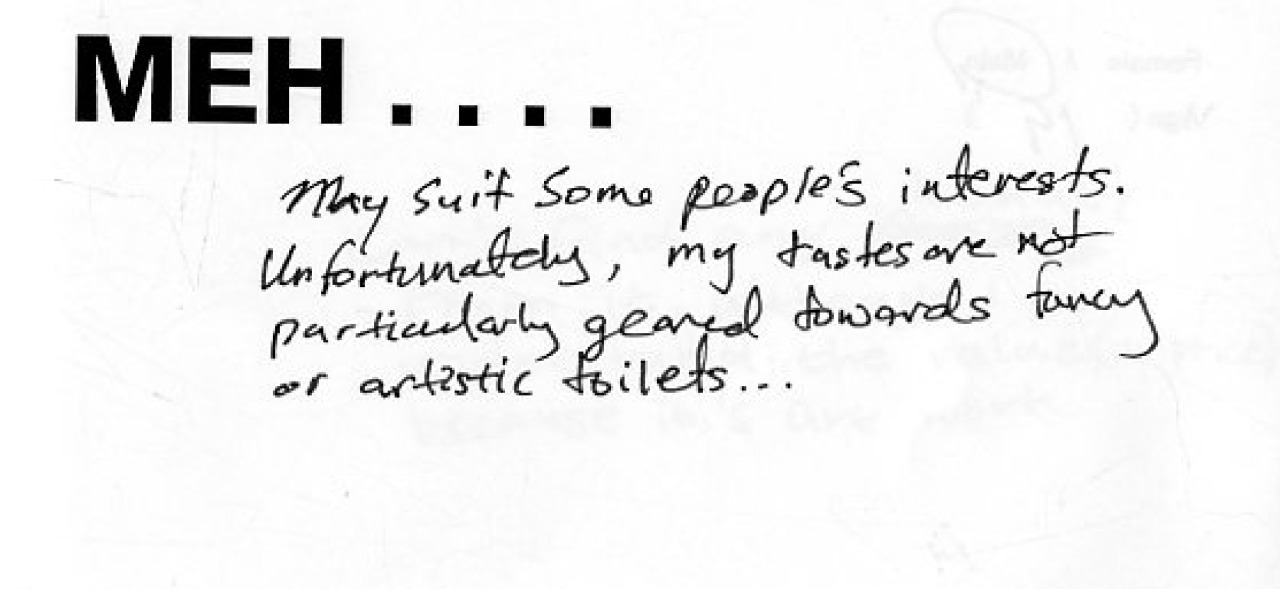 MEH . . . .
May suit some people's interests.
Unfortunately, my tastes are not
particularly geared towards fancy
or artistic toilets...